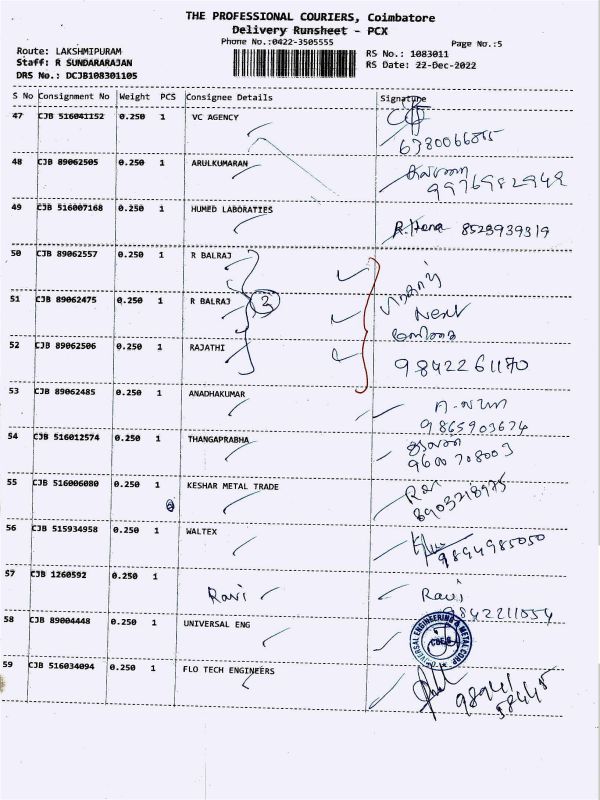 THE PROFESSIONAL COURIERS, Coimbatore
Delivery Runsheet - PCX
Phone No.:0422-3505555
Page No.:5
Route: LAKSHMIPURAM
Staff: R SUNDARARAJAN
DRS No.: DCJB108301105
RS No.: 1083011
RS Date: 22-Dec-2022
S No Consignment No Weight PCS Consignee Details Signature
47 CJB 516041152 0.250 1 VC AGENCY
48 CJB 89062505 0.250 1 ARULKUMARAN
9976982949
49 CJB 516007168 0.250 1 HUMED LABORATIES R.Hema 8523939319
50 CJB 89062557 0.250 1 R BALRAJ
51 CJB 89062475 0.250 1 R BALRAJ Next
52 CJB 89062506 0.250 1 RAJATHI
9842261170
53 CJB 89062485 0.250 1 ANADHAKUMAR
9865903674
54 CJB 516012574 0.250 1 THANGAPRABHA
9600708003
55 CJB 516006080 0.250 1 KESHAR METAL TRADE
8903218975
56 CJB 515934958 0.250 1 WALTEX
9894985050
57 CJB 1260592 0.250 1 Ravi Ravi
9842211054
58 CJB 89004448 0.250 1 UNIVERSAL ENG
UNIVERSAL ENGINEERING & METAL CORP
59 CJB 516034094 0.250 1 FLO TECH ENGINEERS
98941
58445